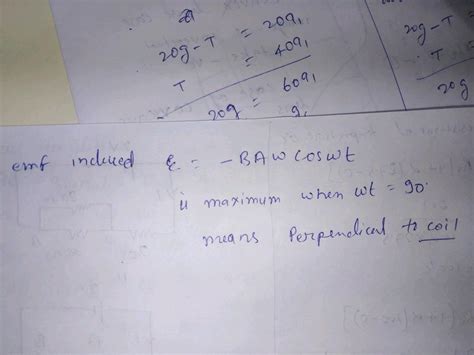 20g - T = 20a₁
T = 40a₁
20g = 60a₁
20g - T =
T =
20g
emf induced ε = - BAw coswt
is maximum when wt = 90°
means Perpendical to coil